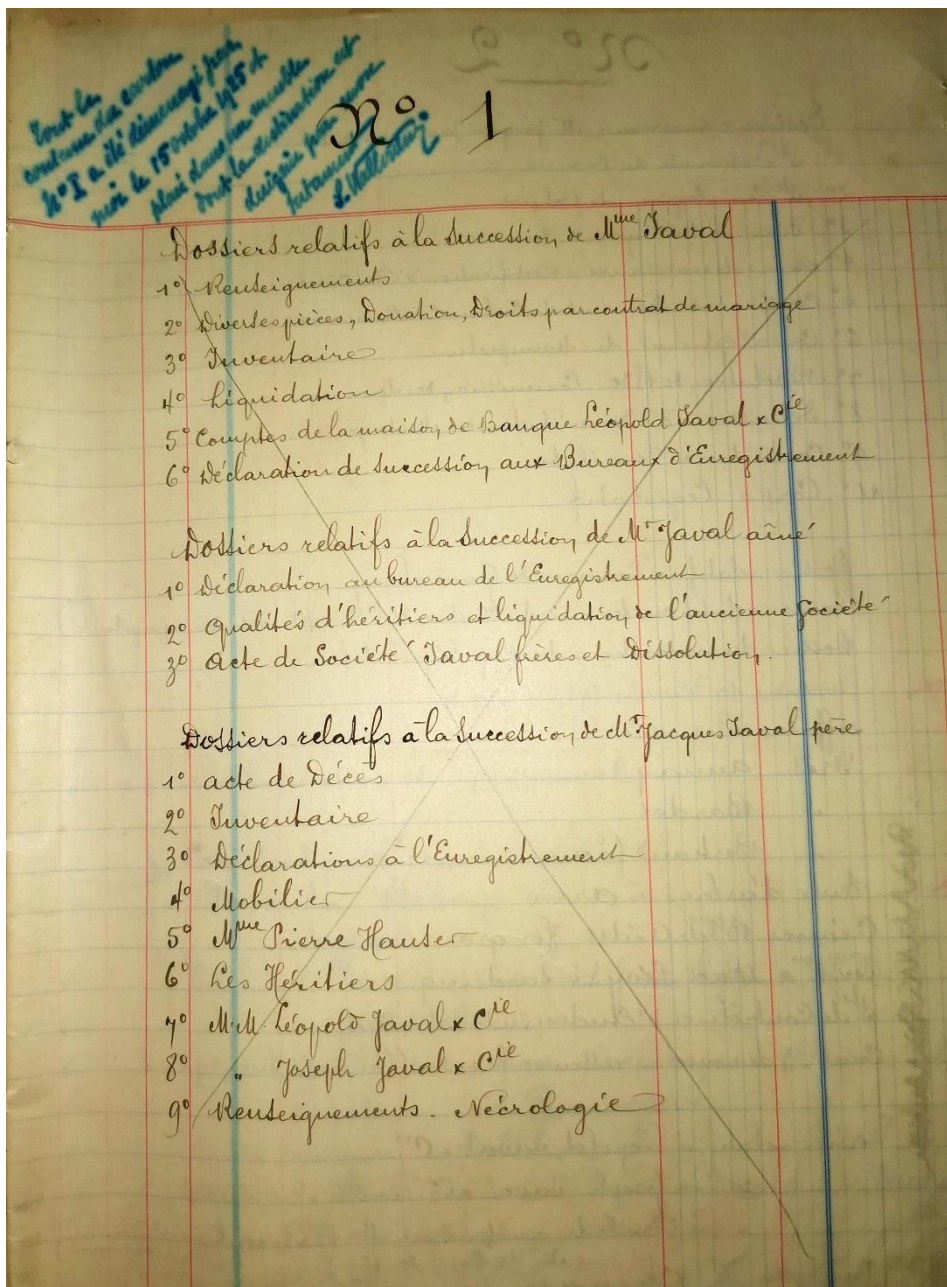 Tout le
contenu du carton
N° I a été déménagé par
moi le 15 octobre 1925 et
placé dans un meuble
dont la destination est
désignée par mon
N° 1
Dossiers relatifs à la Succession de Mme Javal
1° Renseignements
2° Diverses pièces, Donation, Droits par contrat de mariage
3° Inventaire
4° Liquidation
5° Comptes de la maison de Banque Léopold Javal & Cie
6° Déclaration de Succession aux Bureaux d'Enregistrement
Dossiers relatifs à la Succession de Mr Javal aîné
1° Déclaration au bureau de l'Enregistrement
2° Qualités d'héritiers et liquidation de l'ancienne Société
3° Acte de Société Javal frères et Dissolution.
Dossiers relatifs à la Succession de Mr Jacques Javal père
1° acte de Décès
2° Inventaire
3° Déclarations à l'Enregistrement
4° Mobilier
5° Mme Pierre Hauser
6° Les Héritiers
7° M.M. Léopold Javal & Cie
8° " Joseph Javal & Cie
9° Renseignements. Nécrologie